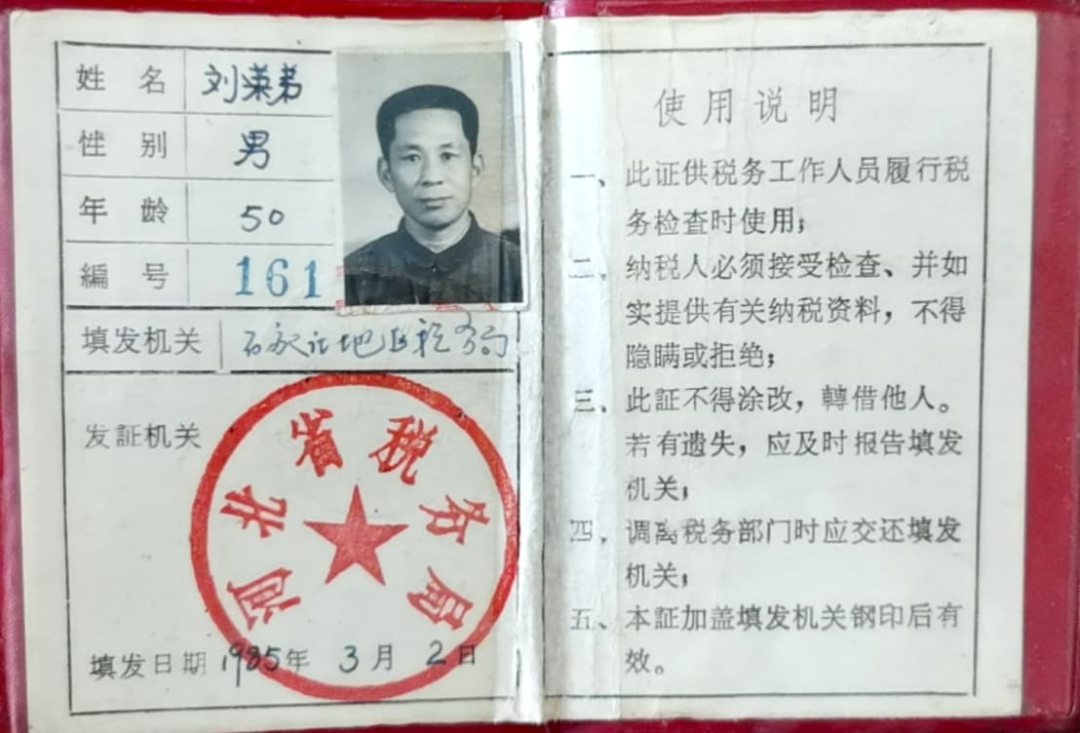 姓 名 刘荣弟
性 别 男
年 龄 50
編 号 161
填发机关 石家庄地区税务局
发証机关
河北省税务局
填发日期 1985年 3月 2日
使用说明
一、此证供税务工作人员履行税
务检查时使用;
二、纳税人必须接受检查、并如
实提供有关纳税资料，不得
隐瞒或拒绝;
三、此証不得涂改，轉借他人。
若有遗失，应及时报告填发
机关;
四、调离税务部门时应交还填发
机关;
五、本証加盖填发机关钢印后有
效。